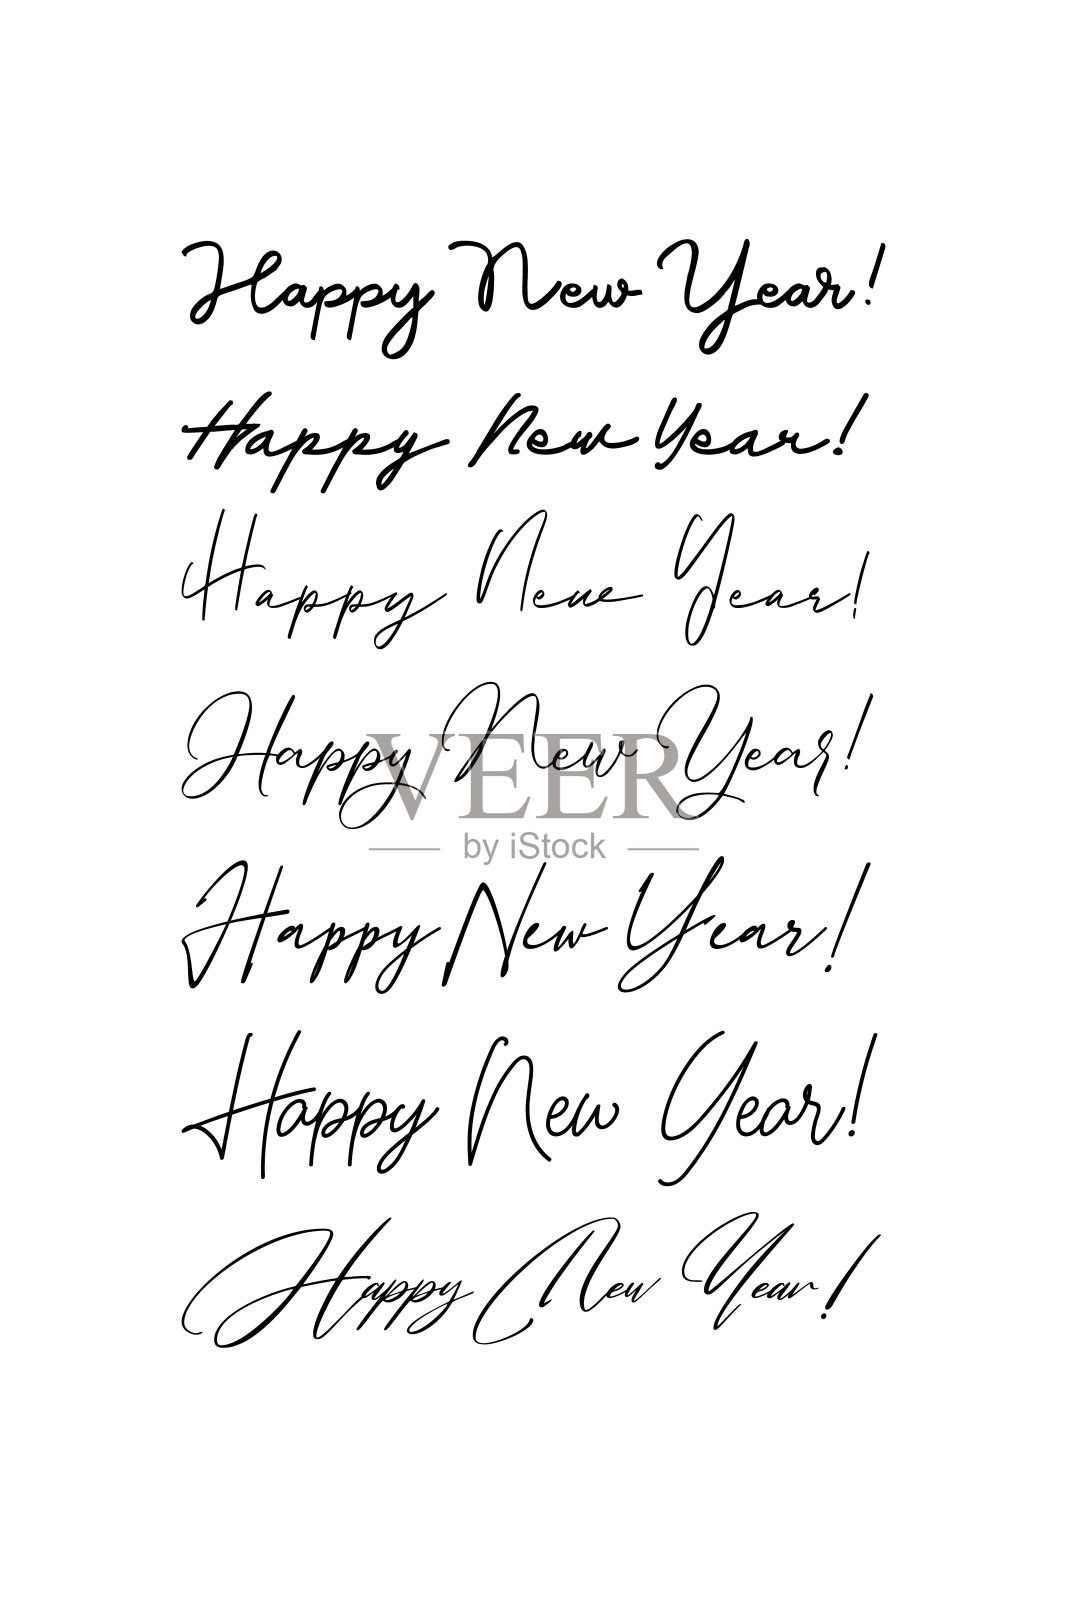 Happy New Year!
Happy New Year!
Happy New Year!
Happy New Year!
VEER
by iStock
Happy New Year!
Happy New Year!
Happy New Year!